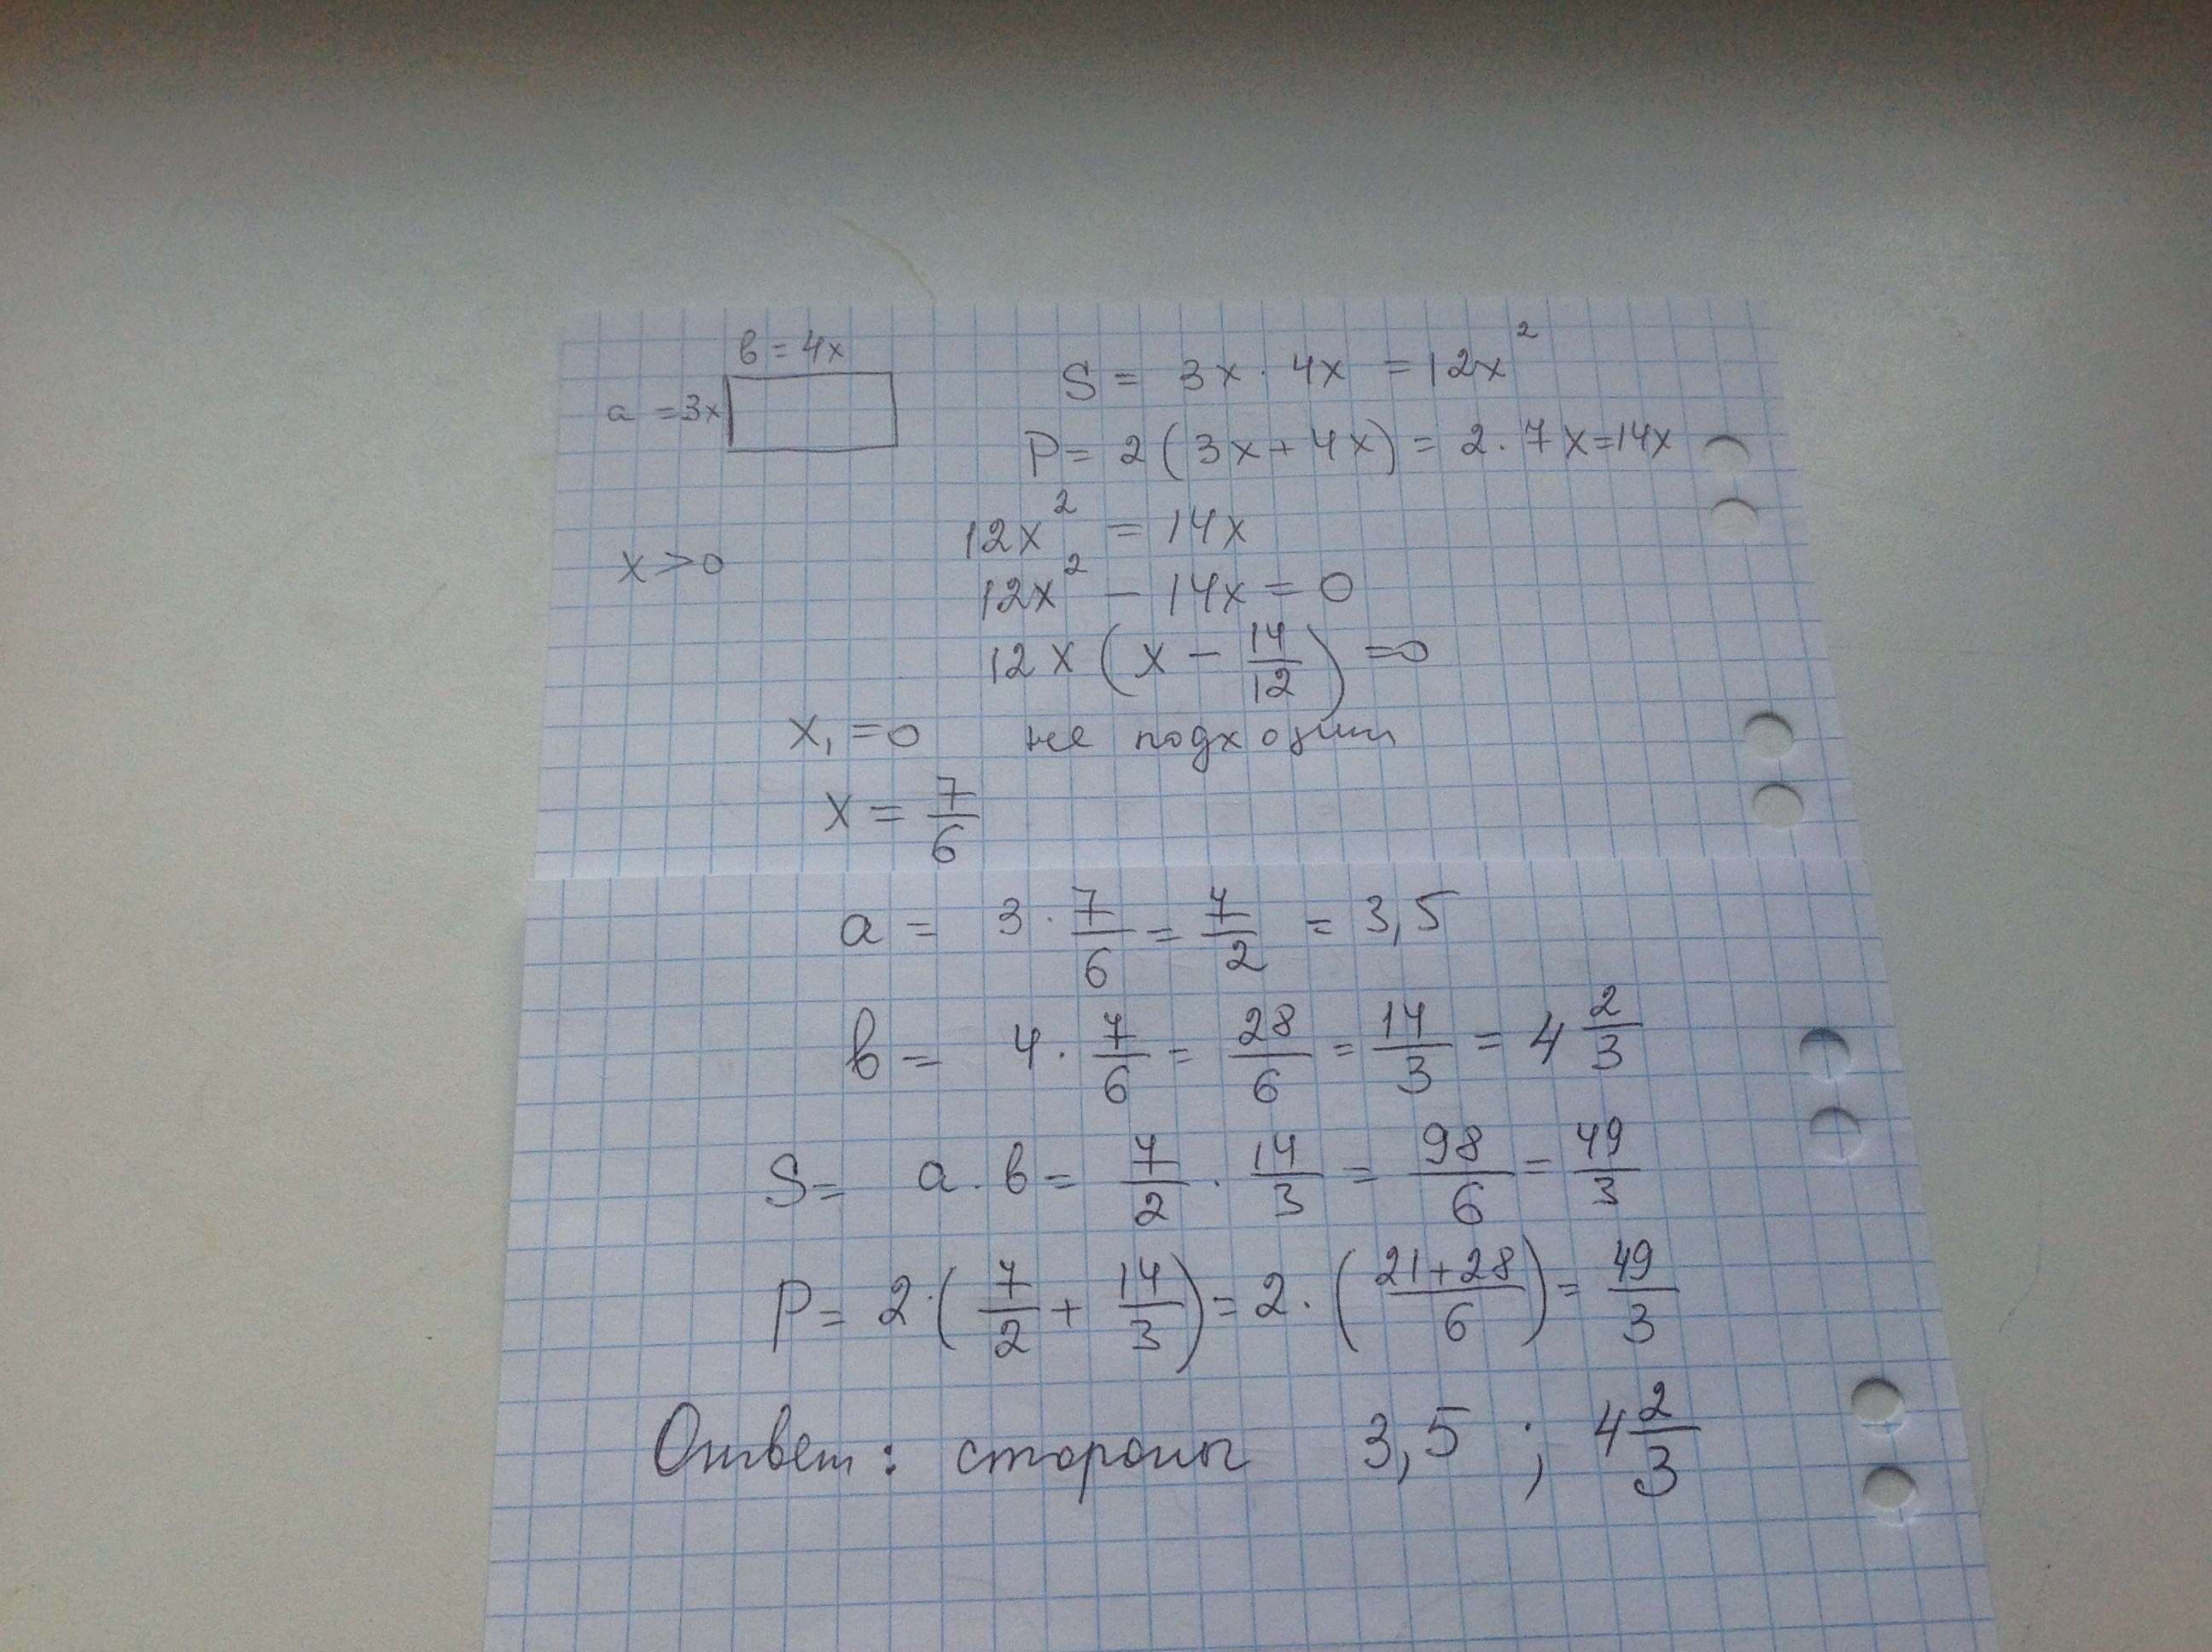 в = 4x
a = 3x
S = 3x · 4x = 12x²
P = 2(3x + 4x) = 2 · 7x = 14x
12x² = 14x
x > 0
12x² − 14x = 0
12x (x − 14/12) = 0
x₁ = 0 не подходит
x = 7/6
a = 3 · 7/6 = 7/2 = 3,5
в = 4 · 7/6 = 28/6 = 14/3 = 4 2/3
S = a · в = 7/2 · 14/3 = 98/6 = 49/3
P = 2 · (7/2 + 14/3) = 2 · (21+28/6) = 49/3
Ответ: стороны 3,5 ; 4 2/3